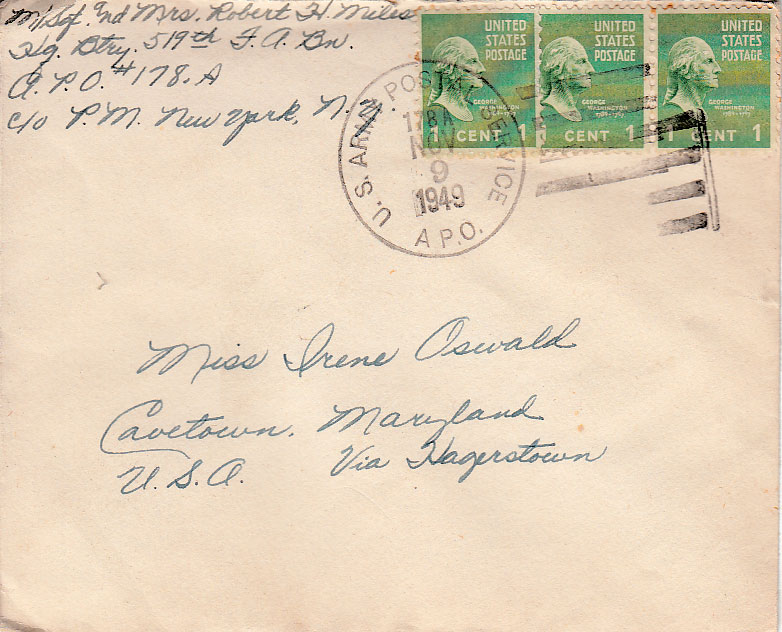 M/Sgt. and Mrs. Robert H. Miles
Hq. Btry. 519th F. A. Bn.
A. P. O. #178-A
c/o P. M. New York, N. Y.
UNITED STATES POSTAGE
GEORGE WASHINGTON
1789-1797
1 CENT 1
UNITED STATES POSTAGE
GEORGE WASHINGTON
1789-1797
CENT 1
UNITED STATES POSTAGE
GEORGE WASHINGTON
1789-1797
1 CENT 1
U.S. ARMY POSTAL SERVICE
178A
NOV
9
1949
A.P.O.
Miss Irene Oswald
Cavetown, Maryland
U. S. A. Via Hagerstown